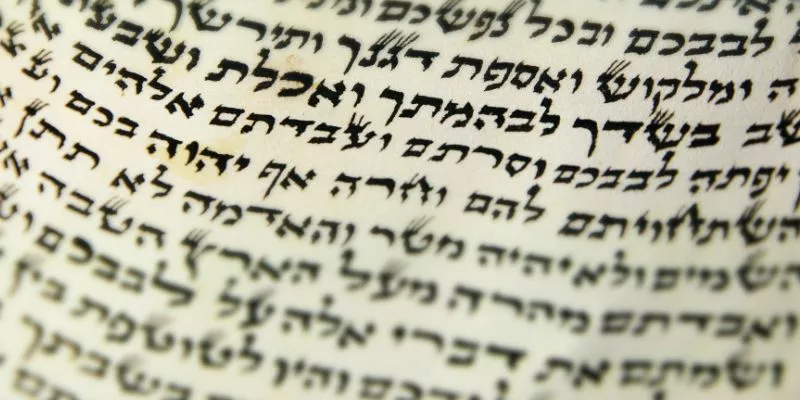 לבבכם ובכל נפשכם ונתתי
ה ומלקוש ואספת דגנך ותירשך
שב בשדך לבהמתך ואכלת ושבע
יפתה לבבכם וסרתם ועבדתם אלהים
השתחויתם להם וחרה אף יהוה בכם
השמים ולא יהיה מטר והאדמה לא תתן
ואבדתם מהרה מעל הארץ הטבה
ושמתם את דברי אלה על לבבכם
ידכם והיו לטוטפת בין
בשבתך